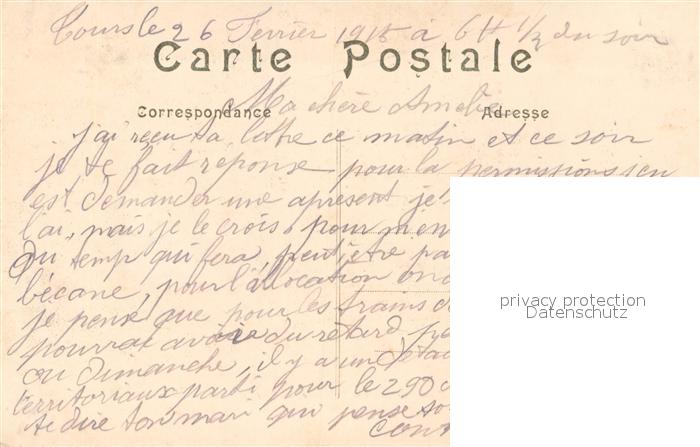 Tours le 26 Fevrier 1915 à 6H 1/2 du soir
Carte Postale
Correspondance
Adresse
Ma chère Amelie
j'ai reçu ta lettre ce matin et ce soir
je te fait reponse pour la permissions j'en
est demander une apresent je
l'ai, mais je le crois pour m'en
du temp qui fera, peut être
bécane, pour l'allocation on
je pense que pour les trains
pourrat avoire du retard
ou Dimanche, il y a une
territoriaux parti pour le 290
te dire ton mari qui pense
privacy protection
Datenschutz